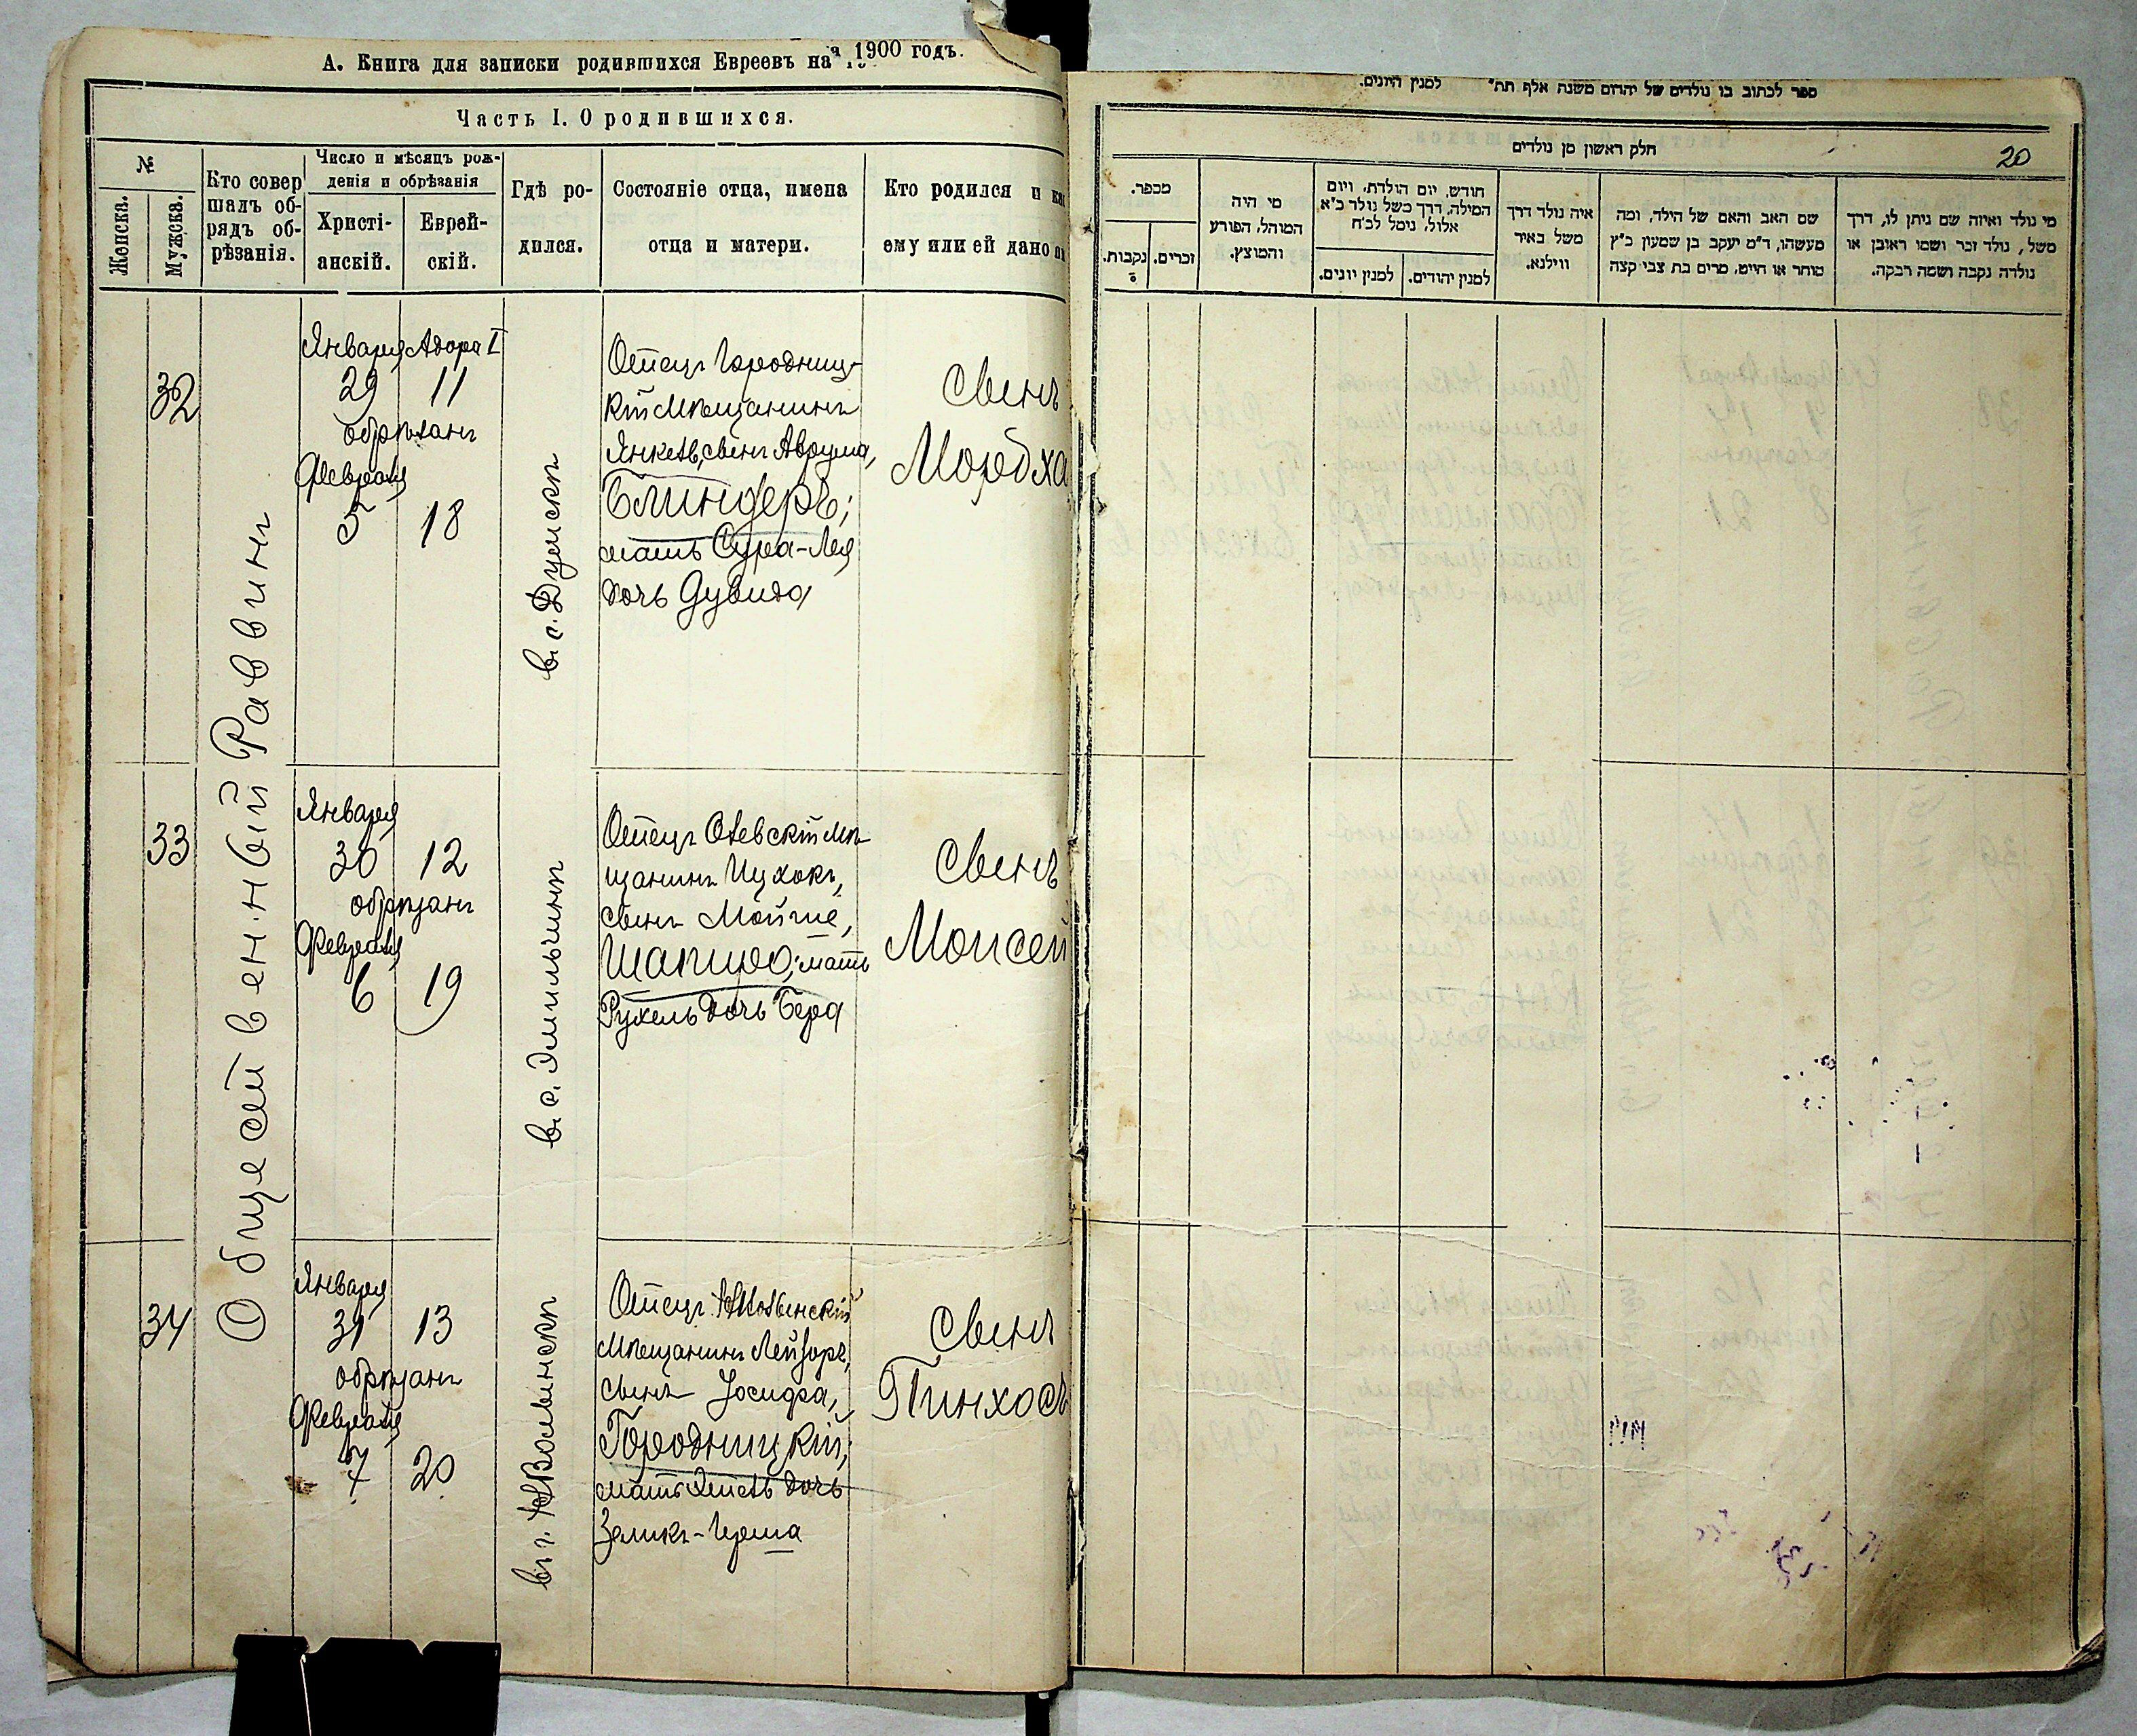 А. Книга для записки родившихся Евреевъ на 1900 годъ.
Часть I. О родившихся.
№
Женска.
Мужска.
Кто совер
шалъ об-
рядъ об-
рѣзанія.
Число и мѣсяцъ рож-
денія и обрѣзанія
Христі-
анскій.
Еврей-
скій.
Гдѣ ро-
дился.
Состояніе отца, имена
отца и матери.
Кто родился и ка
ему или ей дано
Общественный Раввинъ
32
Января Адора I
29 11
обрѣзанъ
Февраля
5 18
въ с. Думскѣ
Отецъ Городниц-
кій Мѣщанинъ
Янкель, сынъ Аврума,
Блиндеръ;
мать Сура-Лея
дочь Дувида
Сынъ
Мордха
33
Января
30 12
обрѣзанъ
Февраля
6 19
въ с. Эмильчинѣ
Отецъ Олевскій Мѣ
щанинъ Ицхокъ,
сынъ Мойше,
Шапиро; мать
Рухель дочь Бера
Сынъ
Моисей
34
Января
31 13
обрѣзанъ
Февраля
7 20
въ г. НВолынскѣ
Отецъ
Мѣщанинъ Лейзоръ,
сынъ Іосифа,
Городницкій;
мать дочь
Зеликъ-Герша
Сынъ
Пинхосъ
ספר לכתוב בו נולדים של יהדום משנת אלף תת״ למנין היונים.
חלק ראשון מן נולדים
20
מספר.
נקבות.
זכרים.
מי היה
המוהל, הפורע
והמוצץ.
חודש, יום הולדת, ויום
המילה, דרך משל נולד כ״א
אלול, נימל לכ״ח
למנין יונים.
למנין יהודים.
איה נולד דרך
משל באיר
ווילנא.
שם האב והאם של הילד, ומה
מעשהו, ד״מ יעקב בן שמעון כ״ץ
סוחר או חייט, מרים בת צבי קצה
מי נולד ואיזה שם ניתן לו, דרך
משל, נולד זכר ושמו ראובן או
נולדה נקבה ושמה רבקה.